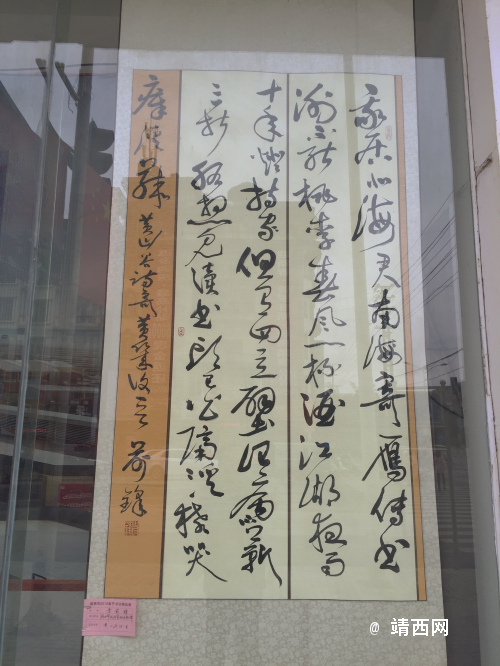 我居北海君南海寄雁傳书
谢不能桃李春風一杯酒江湖夜雨
十年燈持家但有四立壁治病不蕲
三折肱想见讀书頭已白隔溪猿哭
瘴溪藤 黄山谷詩寄黄幾復 鋒
@ 靖西网